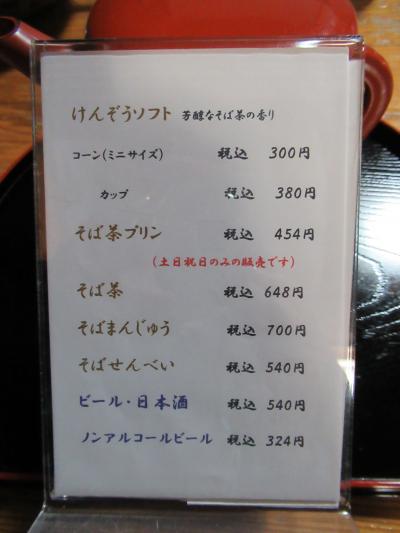 けんぞうソフト 芳醇なそば茶の香り
コーン(ミニサイズ) 税込 300円
カップ 税込 380円
そば茶プリン 税込 454円
(土日祝日のみの販売です)
そば茶 税込 648円
そばまんじゅう 税込 700円
そばせんべい 税込 540円
ビール・日本酒 税込 540円
ノンアルコールビール 税込 324円